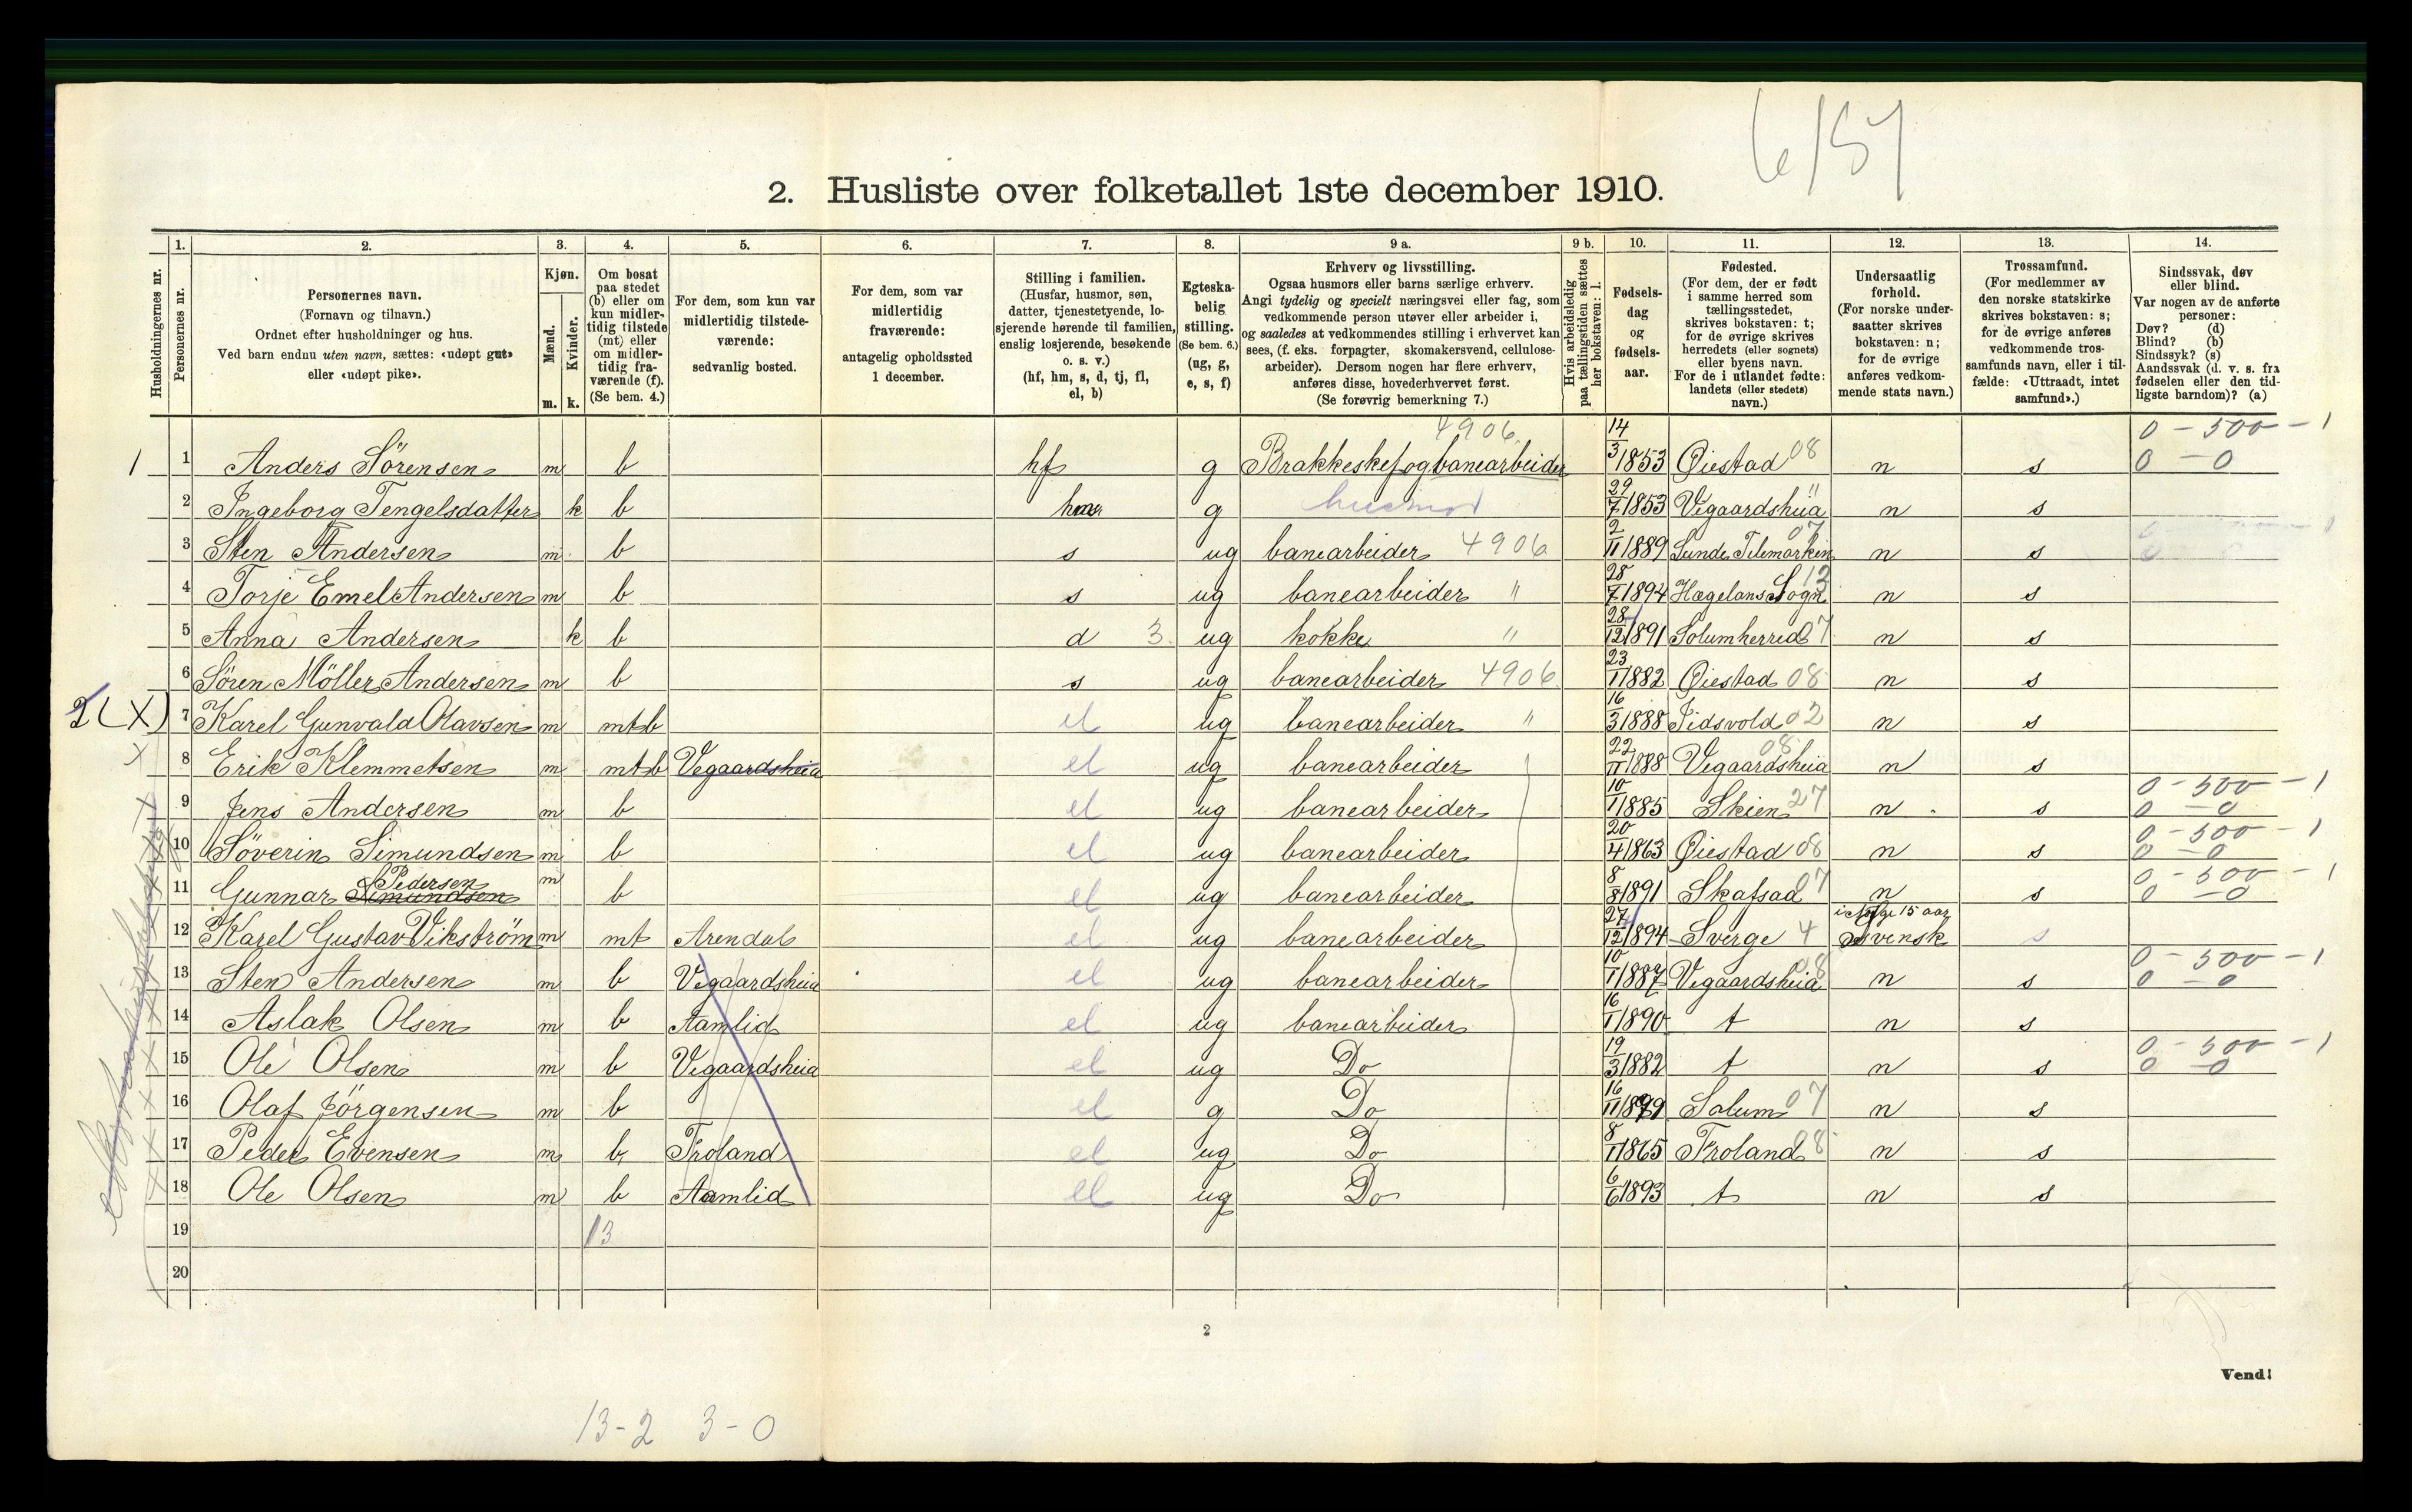 6/51
2. Husliste over folketallet 1ste december 1910.
Husholdningernes nr.
1. Personernes nr.
2. Personernes navn.
(Fornavn og tilnavn.)
Ordnet efter husholdninger og hus.
Ved barn endnu uten navn, sættes: «udøpt gut»
eller «udøpt pike».
3. Kjøn.
Mænd. m.
Kvinder. k.
4. Om bosat
paa stedet
(b) eller om
kun midler-
tidig tilstede
(mt) eller
om midler-
tidig fra-
værende (f).
(Se bem. 4.)
5. For dem, som kun var
midlertidig tilstede-
værende:
sedvanlig bosted.
6. For dem, som var
midlertidig
fraværende:
antagelig opholdssted
1 december.
7. Stilling i familien.
(Husfar, husmor, søn,
datter, tjenestetyende, lo-
sjerende hørende til familien,
enslig losjerende, besøkende
o. s. v.)
(hf, hm, s, d, tj, fl,
el, b)
8. Egteska-
belig
stilling.
(Se bem. 6.)
(ug, g,
e, s, f)
9 a. Erhverv og livsstilling.
Ogsaa husmors eller barns særlige erhverv.
Angi tydelig og specielt næringsvei eller fag, som
vedkommende person utøver eller arbeider i,
og saaledes at vedkommendes stilling i erhvervet kan
sees, (f. eks. forpagter, skomakersvend, cellulose-
arbeider). Dersom nogen har flere erhverv,
anføres disse, hovederhvervet først.
(Se forøvrig bemerkning 7.)
9 b. Hvis arbeidsledig
paa tællingstiden sættes
her bokstaven: l.
10. Fødsels-
dag
og
fødsels-
aar.
11. Fødested.
(For dem, der er født
i samme herred som
tællingsstedet,
skrives bokstaven: t;
for de øvrige skrives
herredets (eller sognets)
eller byens navn.
For de i utlandet fødte:
landets (eller stedets)
navn.)
12. Undersaatlig
forhold.
(For norske under-
saatter skrives
bokstaven: n;
for de øvrige
anføres vedkom-
mende stats navn.)
13. Trossamfund.
(For medlemmer av
den norske statskirke
skrives bokstaven: s;
for de øvrige anføres
vedkommende tros-
samfunds navn, eller i til-
fælde: «Uttraadt, intet
samfund».)
14. Sindssvak, døv
eller blind.
Var nogen av de anførte
personer:
Døv? (d)
Blind? (b)
Sindssyk? (s)
Aandssvak (d. v. s. fra
fødselen eller den tid-
ligste barndom)? (a)
1 1 Anders Sörensen m b hf g Brakkeskef og banearbeider 4906 14/3 1853 Øiestad 08 n s 0-500-1 0-0
2 Ingeborg Tengelsdatter k b hm g husmor 29/7 1853 Vegaardsheia " n s
3 Sten Andersen m b s ug banearbeider 4906 2/11 1889 Sunde Tilemarken 07 n s
4 Torje Emel Andersen m b s ug banearbeider " 28/7 1894 Hægelans Sogn 12 n s
5 Anna Andersen k b d 3 ug kokke " 28/12 1891 Solumherred 07 n s
6 Sören Möller Andersen m b s ug banearbeider 4906 23/1 1882 Øiestad 08 n s
2 (X) 7 Karel Gunvald Olavsen m mt b el ug banearbeider " 16/3 1888 Eidsvold 02 n s
X 8 Erik Klemmetsen m mt b Vegaardsheia el ug banearbeider 22/11 1888 Vegaardsheia 08 n s
X 9 Jens Andersen m b el ug banearbeider 10/1 1885 Skien 27 n s 0-500-1 0-0
10 Söverin Simundsen m b el ug banearbeider 20/4 1863 Øiestad 08 n s 0-500-1 0-0
11 Gunnar Simundsen Pedersen m b el ug banearbeider 8/8 1891 Skafsaa 07 n s 0-500-1 0-0
12 Karel Gustav Vikström m mt Arendal el ug banearbeider 27/12 1894 Sverge 4 i Norge 15 aar Svensk s
13 Sten Andersen m b Vegaardsheia el ug banearbeider 10/1 1887 Vegaardsheia 08 n s 0-500-1 0-0
14 Aslak Olsen m b Aamlid el ug banearbeider 16/1 1890 t n s
15 Ole Olsen m b Vegaardsheia el ug Do 19/3 1882 t n s 0-500-1 0-0
16 Olaf Jörgensen m b el g Do 16/11 1879 Solum 07 n s
17 Peder Evensen m b Froland el ug Do 8/1 1865 Froland 08 n s
18 Ole Olsen m b Aamlid el ug Do 6/6 1893 t n s
19 13
20
2
Vend!
13-2 3-0